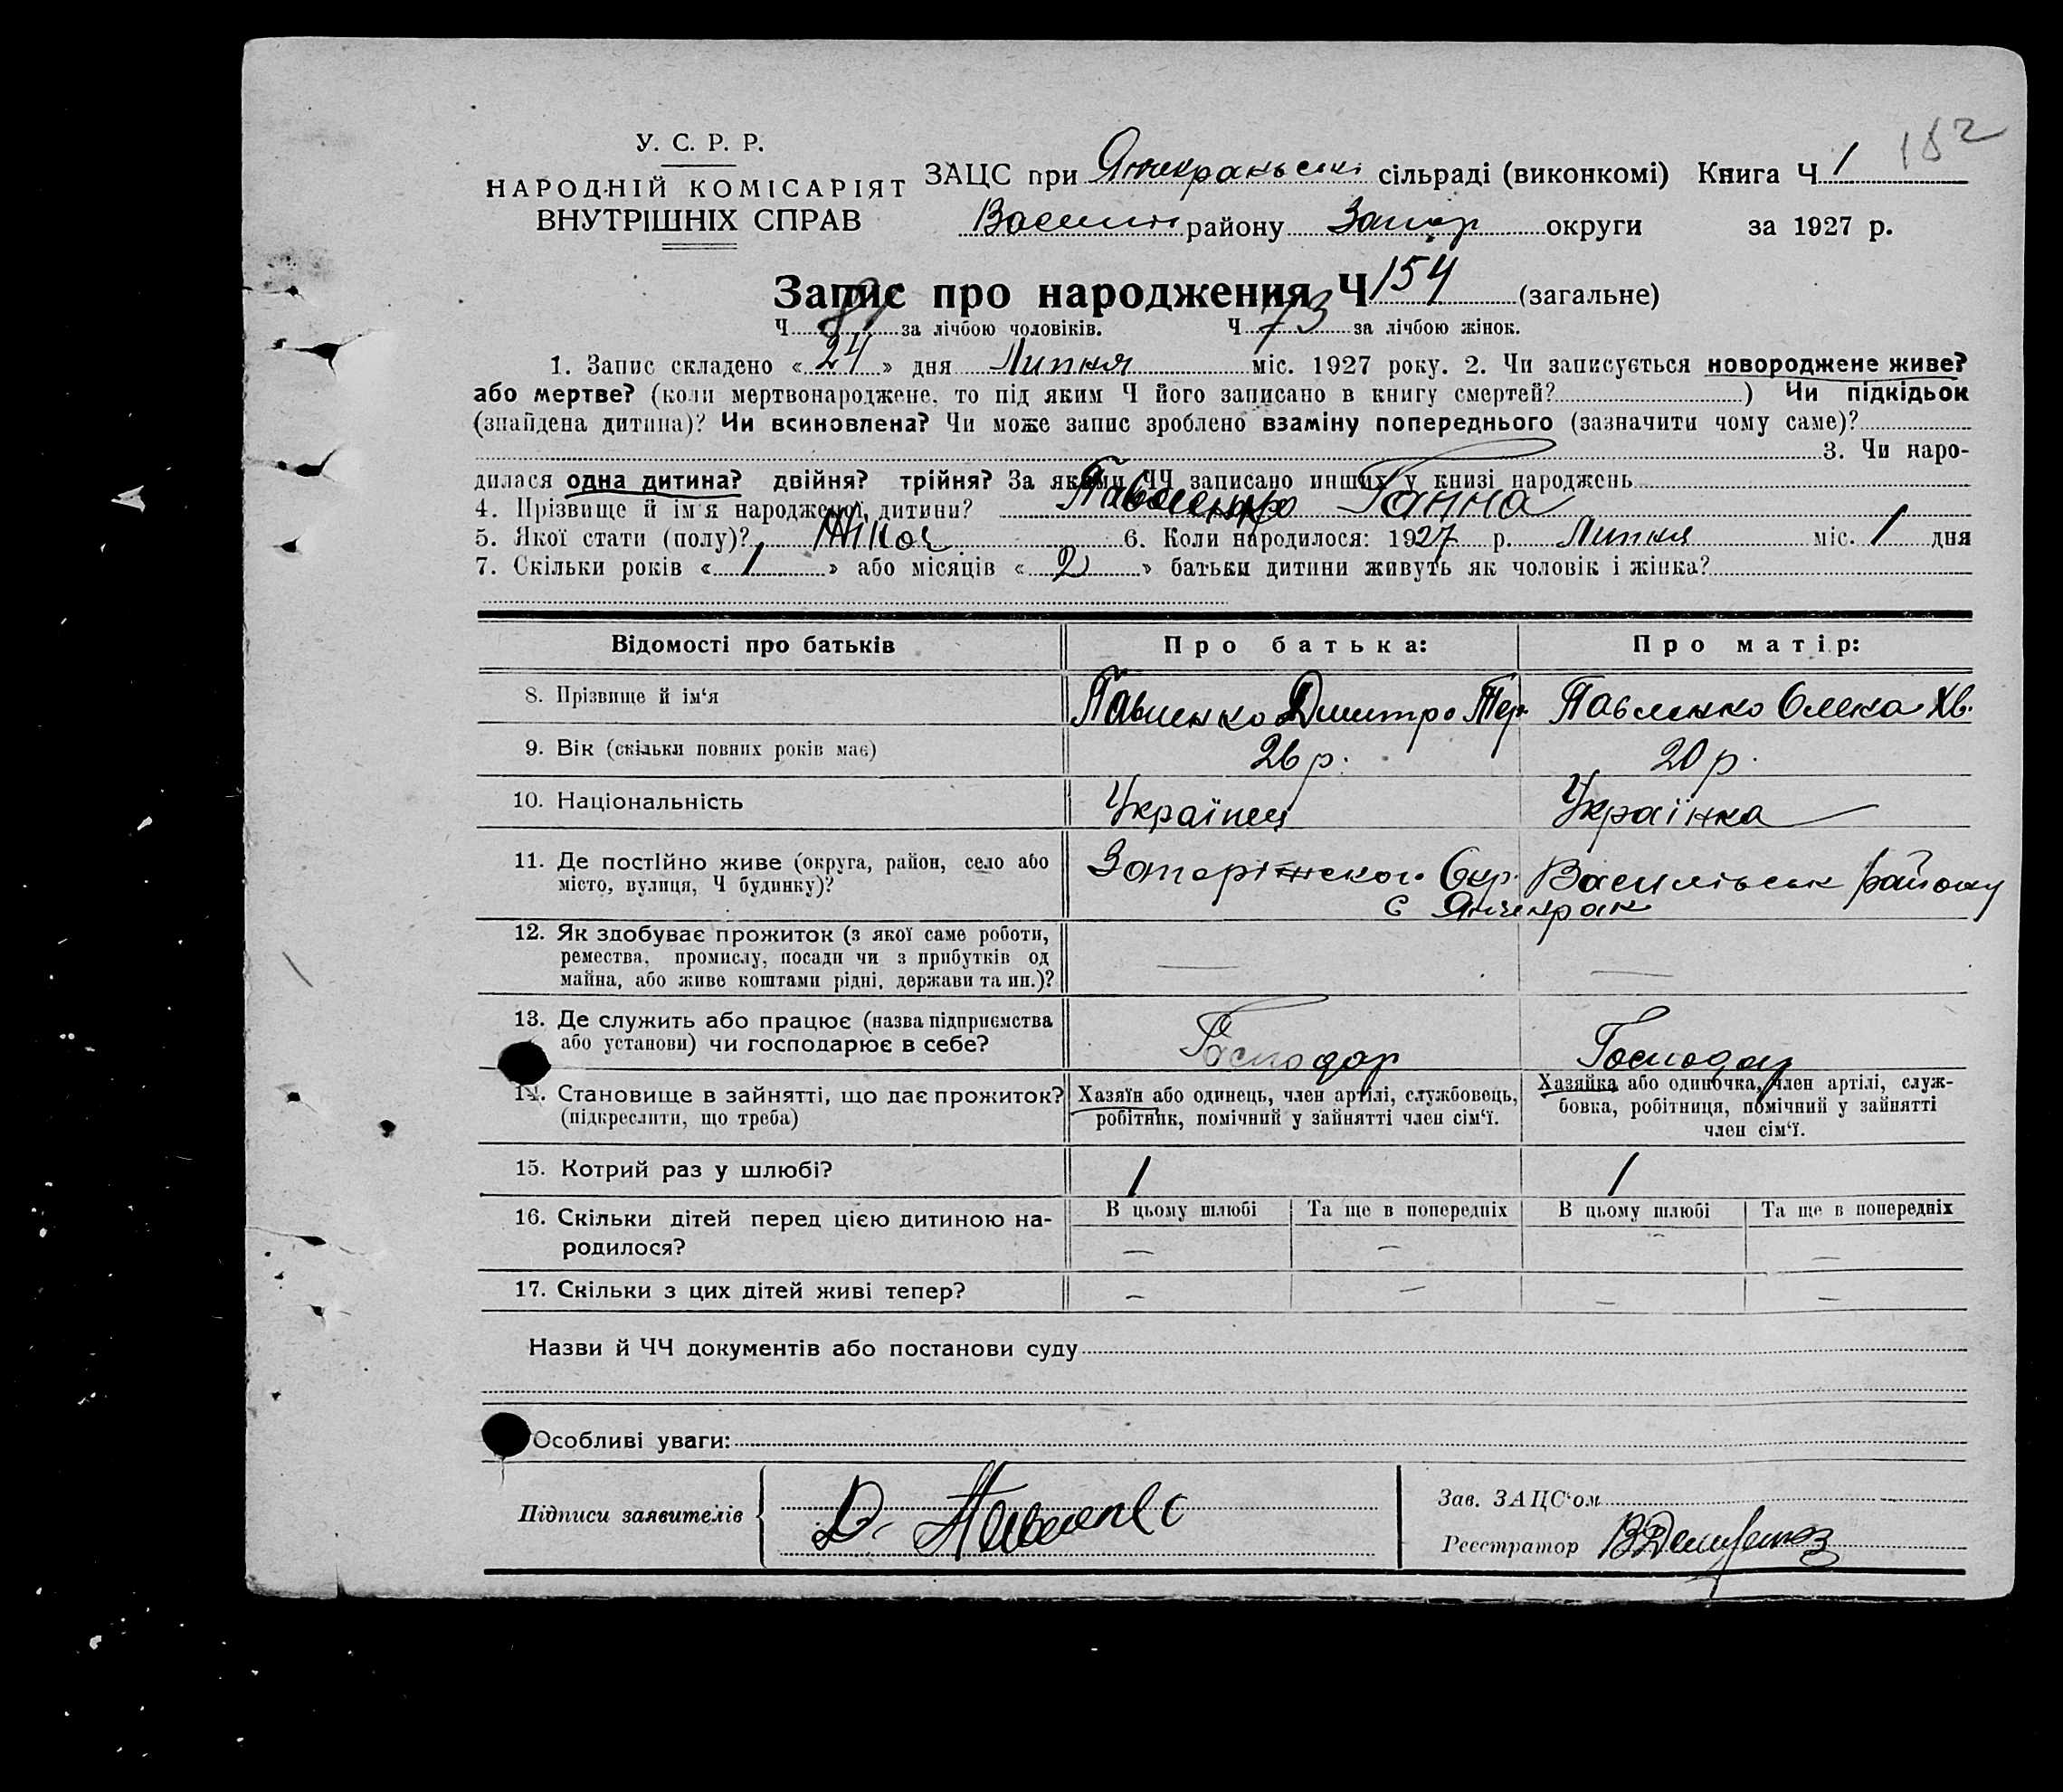 182
У. С. Р. Р.
НАРОДНІЙ КОМІСАРІЯТ
ВНУТРІШНІХ СПРАВ
ЗАЦС при сільраді (виконкомі) Книга Ч 1
району Запор округи за 1927 р.
Запис про народження Ч 154 (загальне)
Ч 81 за лічбою чоловіків. Ч 73 за лічбою жінок.
1. Запис складено « 24 » дня Липня міс. 1927 року. 2. Чи записується новороджене живе?
або мертве? (коли мертвонароджене, то під яким Ч його записано в книгу смертей? ) Чи підкідьок
(знайдена дитина)? Чи всиновлена? Чи може запис зроблено взаміну попереднього (зазначити чому саме)?
3. Чи наро-
дилася одна дитина? двійня? трійня? За якими ЧЧ записано инших у книзі народжень
4. Прізвище й ім'я народженої дитини? Павленко Ганна
5. Якої стати (полу)? Жіноч 6. Коли народилося: 1927 р. Липня міс. 1 дня
7. Скільки років « 1 » або місяців « 2 » батьки дитини живуть як чоловік і жінка?
Відомості про батьків Про батька: Про матір:
8. Прізвище й ім'я Павленко Дмитро Павленко Олека Хв.
9. Вік (скільки повних років має) 26 р. 20 р.
10. Національність Українец Українка
11. Де постійно живе (округа, район, село або Окр. Васильевск району
місто, вулиця, Ч будинку)? с Янчекрак
12. Як здобуває прожиток (з якої саме роботи,
ремества, промислу, посади чи з прибутків од
майна, або живе коштами рідні, держави та ин.)? — —
13. Де служить або працює (назва підприємства
або установи) чи господарює в себе? Господар Господар
14. Становище в зайнятті, що дає прожиток? Хазяїн або одинець, член артілі, службовець, Хазяйка або одиночка, член артілі, служ-
(підкреслити, що треба) робітник, помічний у зайнятті член сім'ї. бовка, робітниця, помічний у зайнятті
член сім'ї.
15. Котрий раз у шлюбі? 1 1
16. Скільки дітей перед цією дитиною на- В цьому шлюбі Та ще в попередніх В цьому шлюбі Та ще в попередніх
родилося? — — — —
17. Скільки з цих дітей живі тепер? — — — —
Назви й ЧЧ документів або постанови суду
Особливі уваги:
Підписи заявителів Д. Павленко
Зав. ЗАЦС'ом
Реєстратор